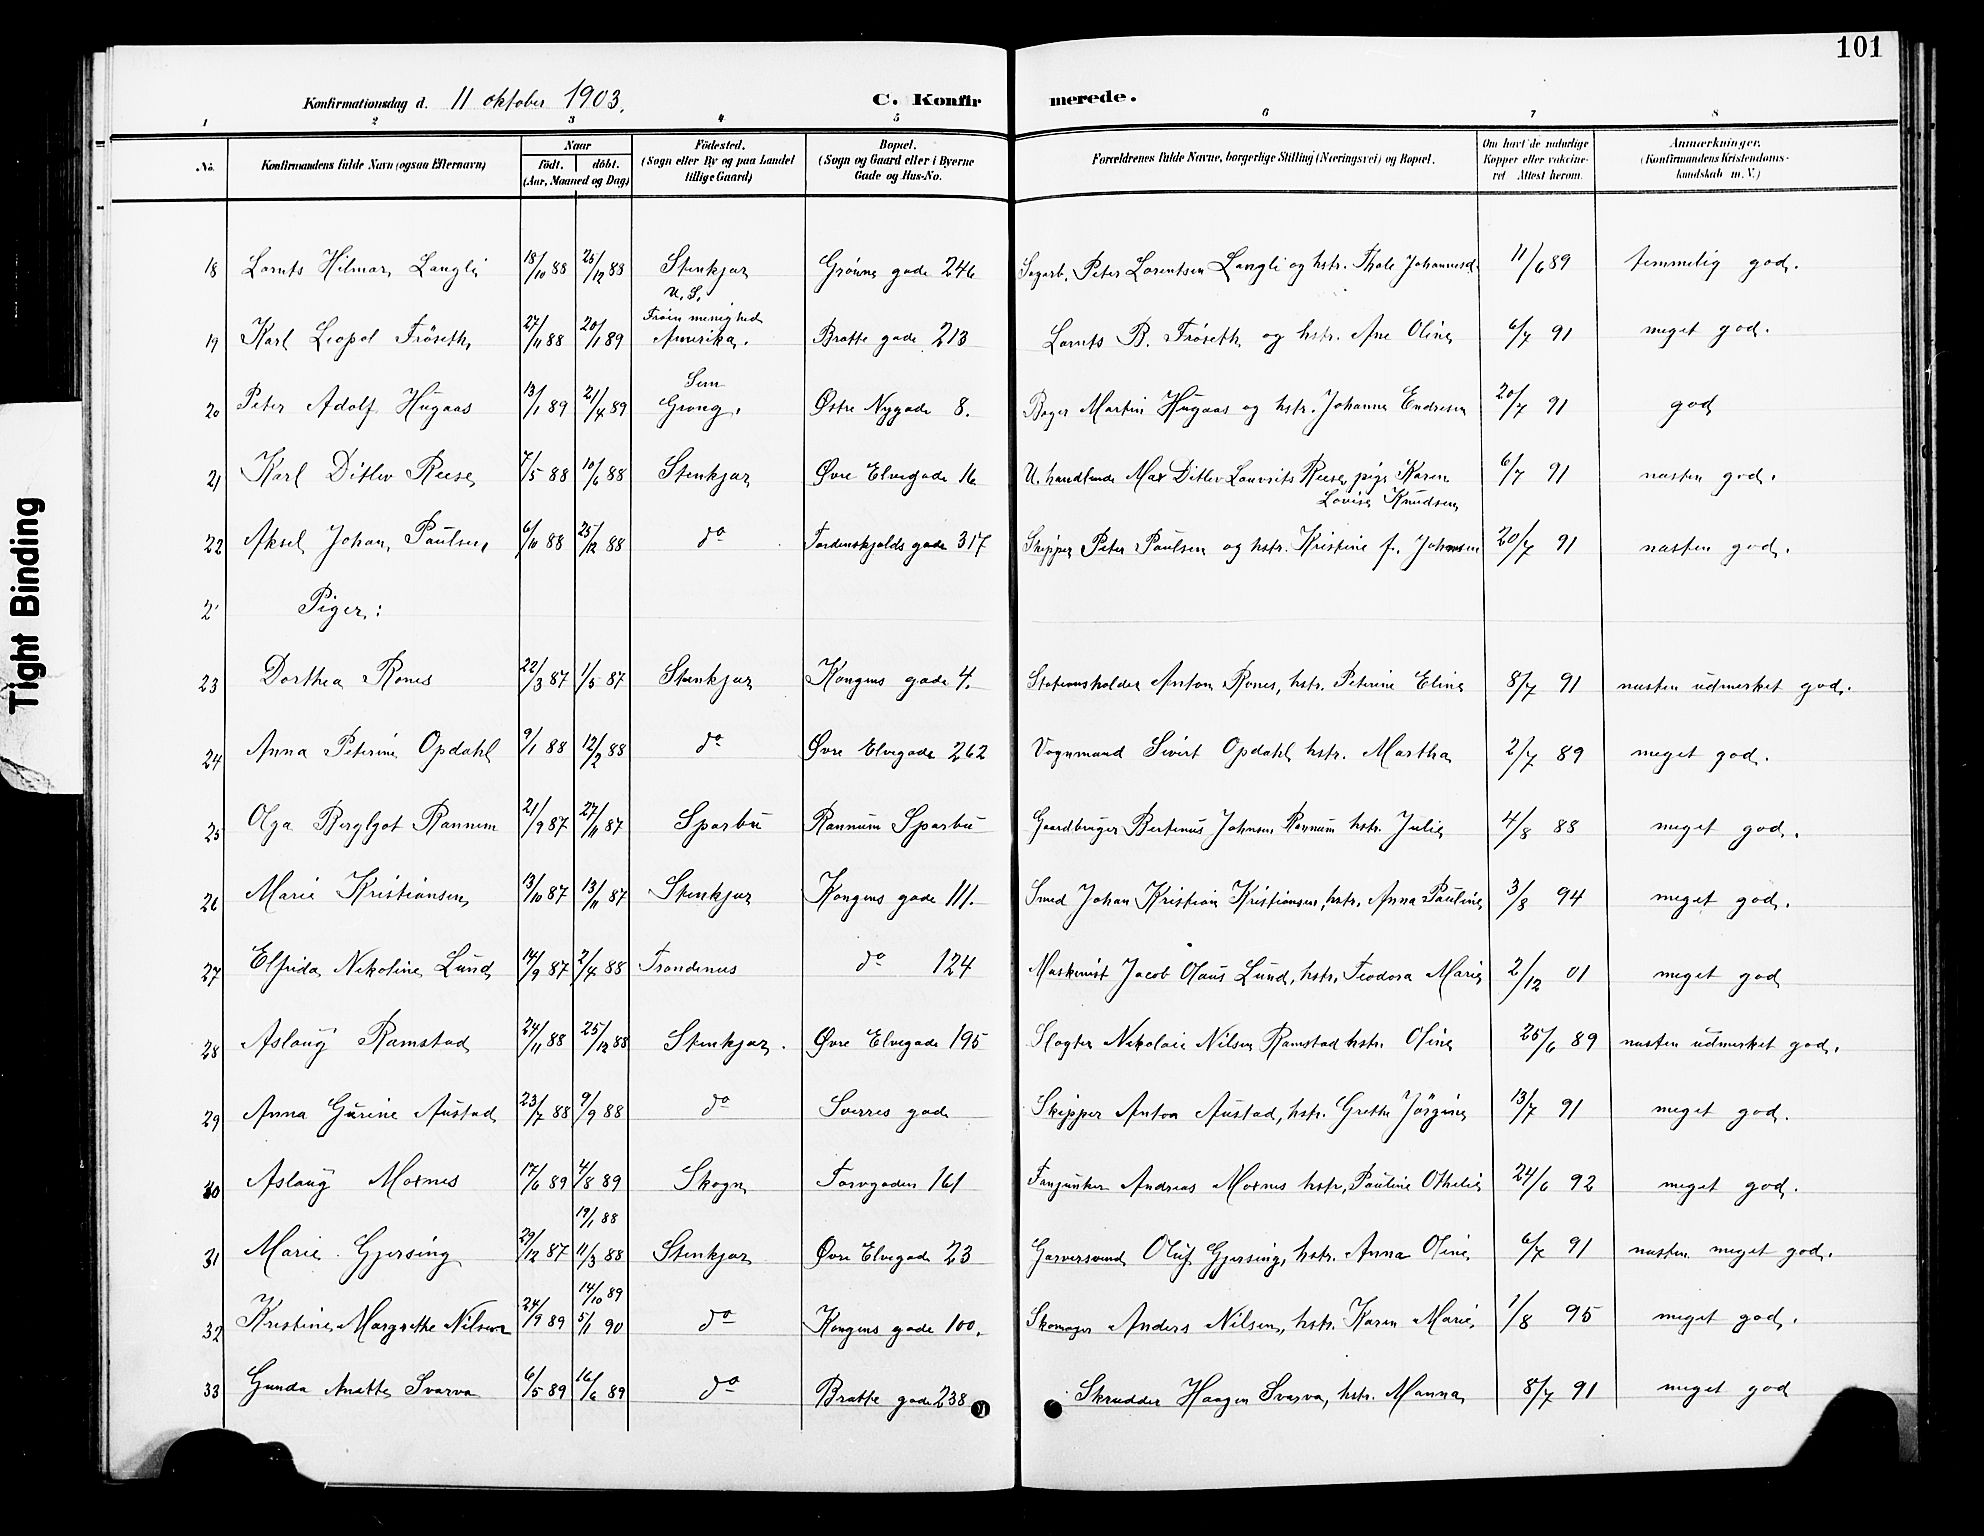 101
Konfirmationsdag d. 11 oktober 1903.
C. Konfir merede.
1 2 3 4 5 6 7 8
No. Konfirmandens fulde Navn (ogsaa Efternavn) Naar født. døbt. (Aar, Maaned og Dag) Fødested. (Sogn eller By og paa Landet tillige Gaard) Bopæl. (Sogn og Gaard eller i Byerne Gade og Hus-No. Forældrenes fulde Navne, borgerlige Stilling (Næringsvei) og Bopæl. Om havt de naturlige Kopper eller vaccineret. Attest herom. Anmærkninger. (Konfirmandens Kristendomskundskab m. V.)
18 Lornts Hilmar Langli 18/10 88 26/12 88 Stenkjær Grönne gade 246 Sagarb. Peter Lorentsen Langli og hstr. Thale Johannesd. 11/6 89 temmelig god.
19 Karl Leopol Fröseth 27/11 88 20/1 89 U. S. menighed Amerika. Bratte gade 213 Lornts B. Fröseth og hstr. Ane Oline 6/7 91 meget god.
20 Peter Adolf Hugaas 13/1 89 21/4 89 Sem Grong. Østre Nygade 8. Bager Martin Hugaas og hstr. Johanna Endresen 20/7 91 god
21 Karl Ditlev Reese 7/5 88 10/6 88 Stenkjær Øvre Elvegade 16 U. handlende Max Ditlev Lauvrits Reese, pige Karen Lovise Knudsen 6/7 91 næsten god.
22 Aksel Johan Paulsen 6/10 88 25/12 88 do Tordenskjolds gade 317 Skipper Peter Paulsen og hstr. Kristine f. Johnsen 20/7 91 næsten god.
2 Piger:
23 Dorthea Rones 22/3 87 1/5 87 Stenkjær Kongens gade 4. Stationsholder Anton Rones, hstr. Peterine Eline 8/7 91 næsten udmerket god.
24 Anna Peterine Opdahl 9/1 88 12/2 88 do Øvre Elvegade 262 Vognmand Sivert Opdahl hstr. Martha 2/7 89 meget god.
25 Olga Berglgot Rannum 21/9 87 27/11 87 Sparbu Rannum Sparbu Gaardbruger Bertinus Johnsen Rannum hstr. Julie 4/8 88 meget god.
26 Marie Kristiansen 13/10 87 13/11 87 Stenkjær Kongens gade 111. Smed Johan Kristian Kristiansen, hstr. Anna Pauline 3/8 94 meget god.
27 Elfrida Nikoline Lund 14/9 87 2/4 88 Trondenes do 124 Maskinist Jacob Olaus Lund, hstr. Teodora Marie 2/12 01 meget god
28 Aslaug Ramstad 24/11 88 25/12 88 Stenkjær. Øvre Elvegade 195 Slagter Nikolaie Nilsen Ramstad hstr. Oline 25/6 89 næsten udmerket god.
29 Anna Gurine Austad 23/7 88 9/9 88 do Sverres gade Skipper Anton Austad, hstr. Grethe Jörgine 13/7 91 meget god.
30 Aslaug Moxnes 17/6 89 4/8 89 Skogn Torvgaden 161 Fanjunker Andreas Moxnes hstr, Pauline Othelie 24/6 92 meget god.
31 Marie Gjersing 29/12 87 19/1 88 11/3 88 Stenkjær Øvre Elvegade 23 Garversvend Oluf Gjersing, hstr. Anna Oline 6/7 91 næsten meget god.
32 Kristine Margrethe Nilsen 24/9 89 14/10 89 5/1 90 do Kongens gade 100. Skomager Anders Nilsen, hstr. Karen Marie 1/8 95 meget god.
33 Gunda Anette Svarva 6/5 89 16/6 89 do Bratte gade 238 Skrædder Haagen Svarva, hstr. Manna 8/7 91 meget god
Tight Binding